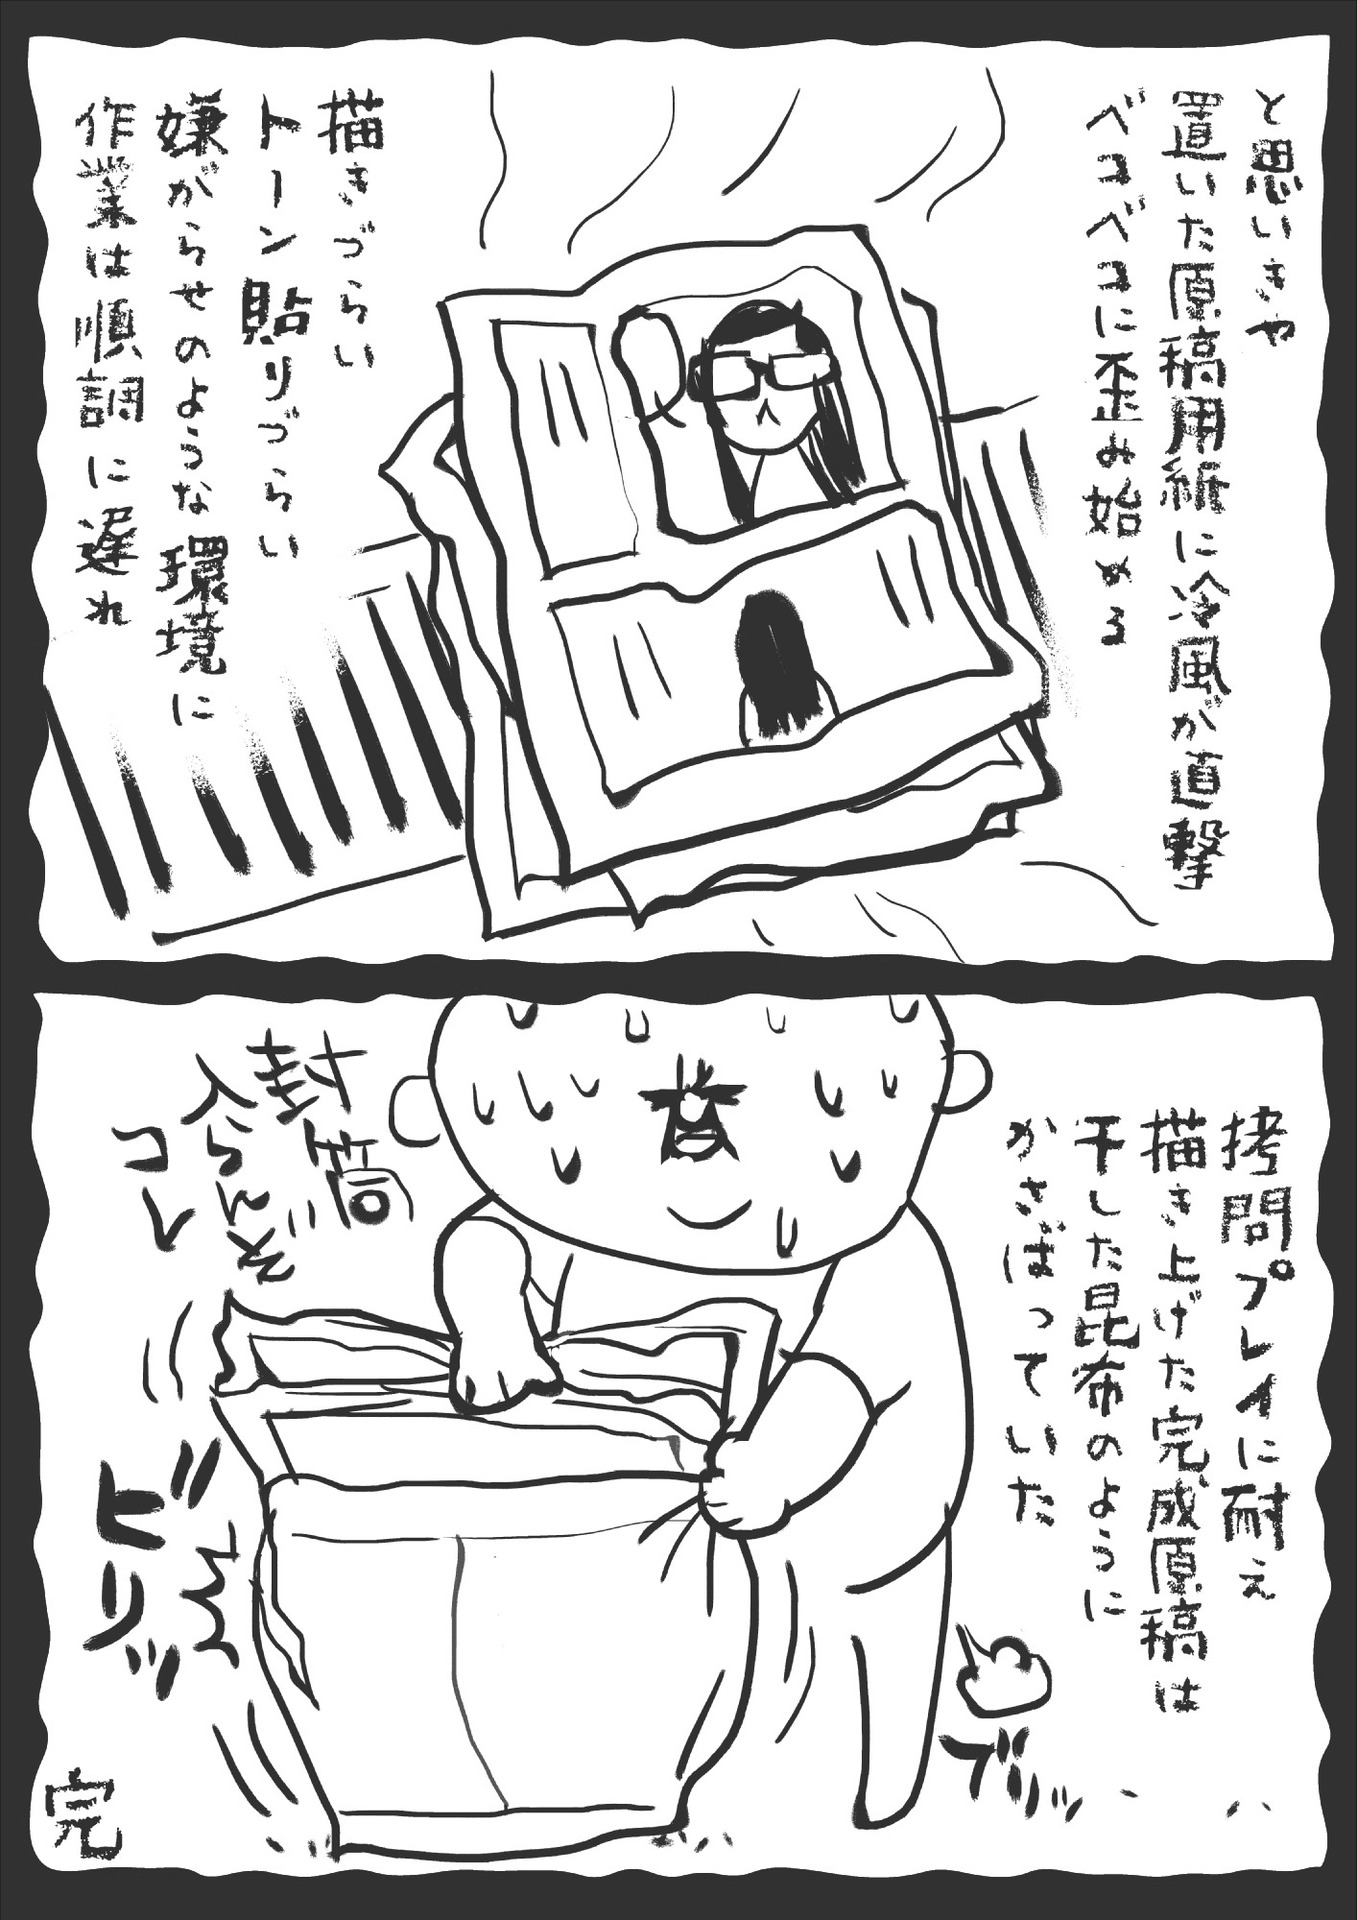 と思いきや
置いた原稿用紙に冷風が直撃
ベコベコに歪み始める
描きづらい
トーン貼りづらい
嫌がらせのような環境に
作業は順調に遅れ
拷問プレイに耐え
描き上げた完成原稿は
干した昆布のように
かさばっていた
封筒
入らんぞ
コレ
ビリッ
ブリッ
完